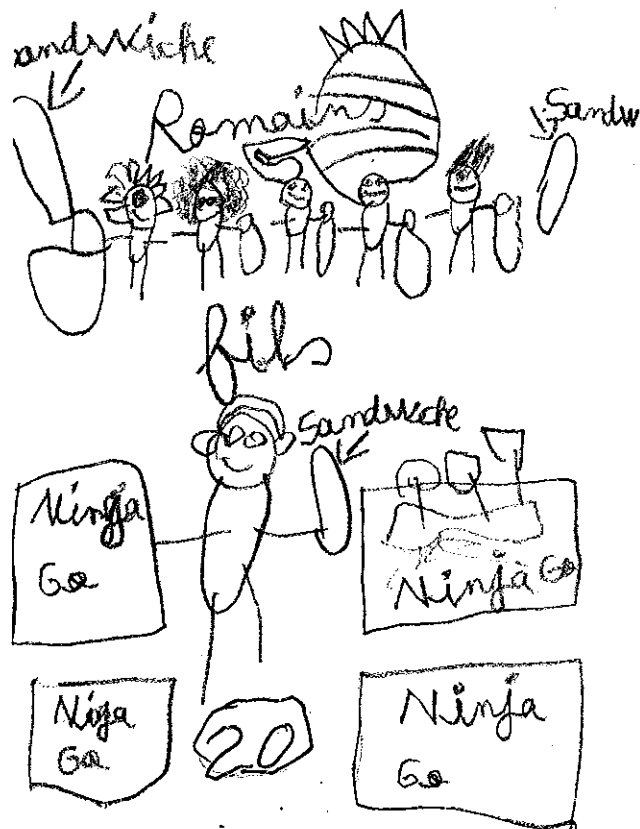 andwiche
Romains
Sandw
fils
Sandwiche
Ninja
Go
Ninja Go
Ninja
Go
20
Ninja
Go